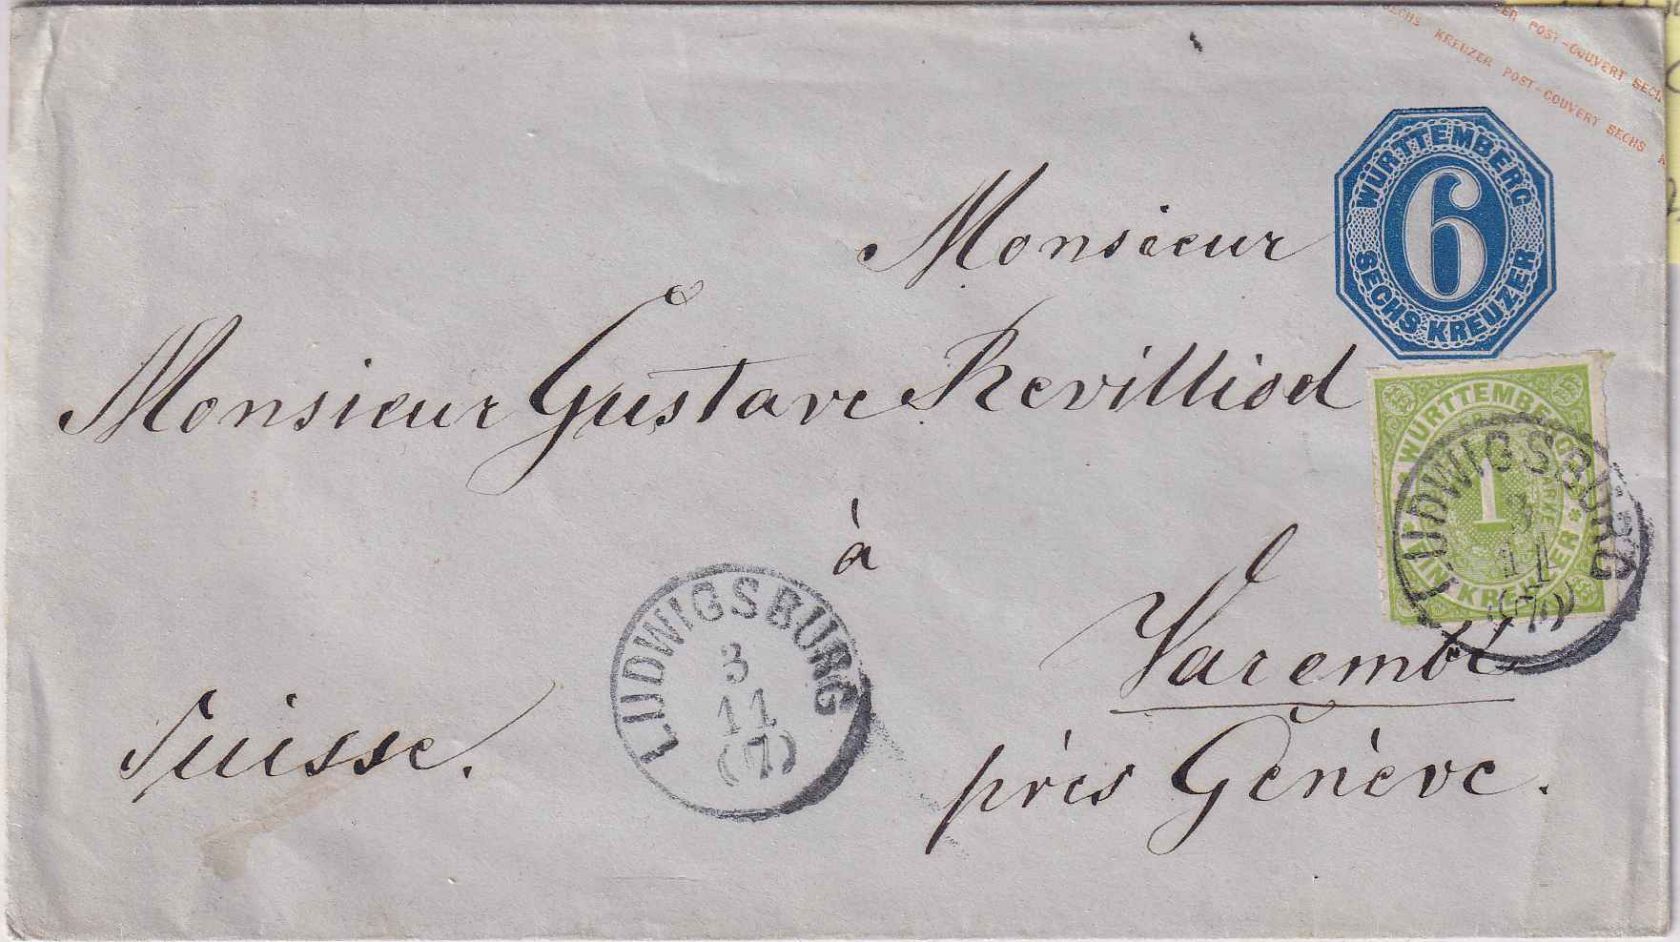 SECHS KREUZER POST-COUVERT SECHS
POST-COUVERT SECHS
WÜRTTEMBERG
6
SECHS KREUZER
Monsieur
Monsieur Gustave Revilliod
WÜRTTEMBERG
1
EIN KREUZER
LUDWIGSBURG
3
11
(7)
à
Varembé
près Genève.
Suisse.
LUDWIGSBURG
3
11
(7)